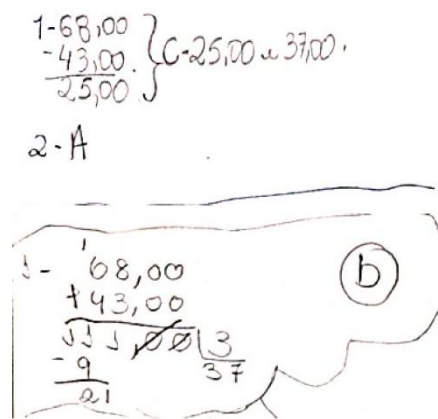 1-68,00
-43,00
25,00
C-25,00 e 37,00.
2-A
1- 68,00
1
+43,00
b
111,00 3
-9 37
21